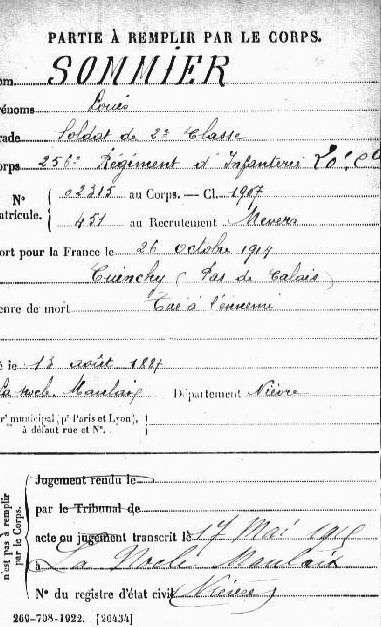 PARTIE À REMPLIR PAR LE CORPS.
om SOMMIER
rénoms Louis
rade Soldat de 2e Classe
orps 256e Régiment d'Infanterie 20e Cie
N° 02315 au Corps. — Cl. 1907
atricule. 451 au Recrutement Nevers
ort pour la France le 26 octobre 1914
Cuinchy (Pas de Calais)
enre de mort Tué à l'ennemi
é le 13 août 1887
La Nocle Maulaix Département Nièvre
rt municipal (pr Paris et Lyon),
à défaut rue et N°.
Jugement rendu le
par le Tribunal de
acte ou jugement transcrit le 17 Mai
à La Nocle Maulaix
N° du registre d'état civil (Nièvre)
n'est pas à remplir
par le Corps.
269-708-1922. [26434]